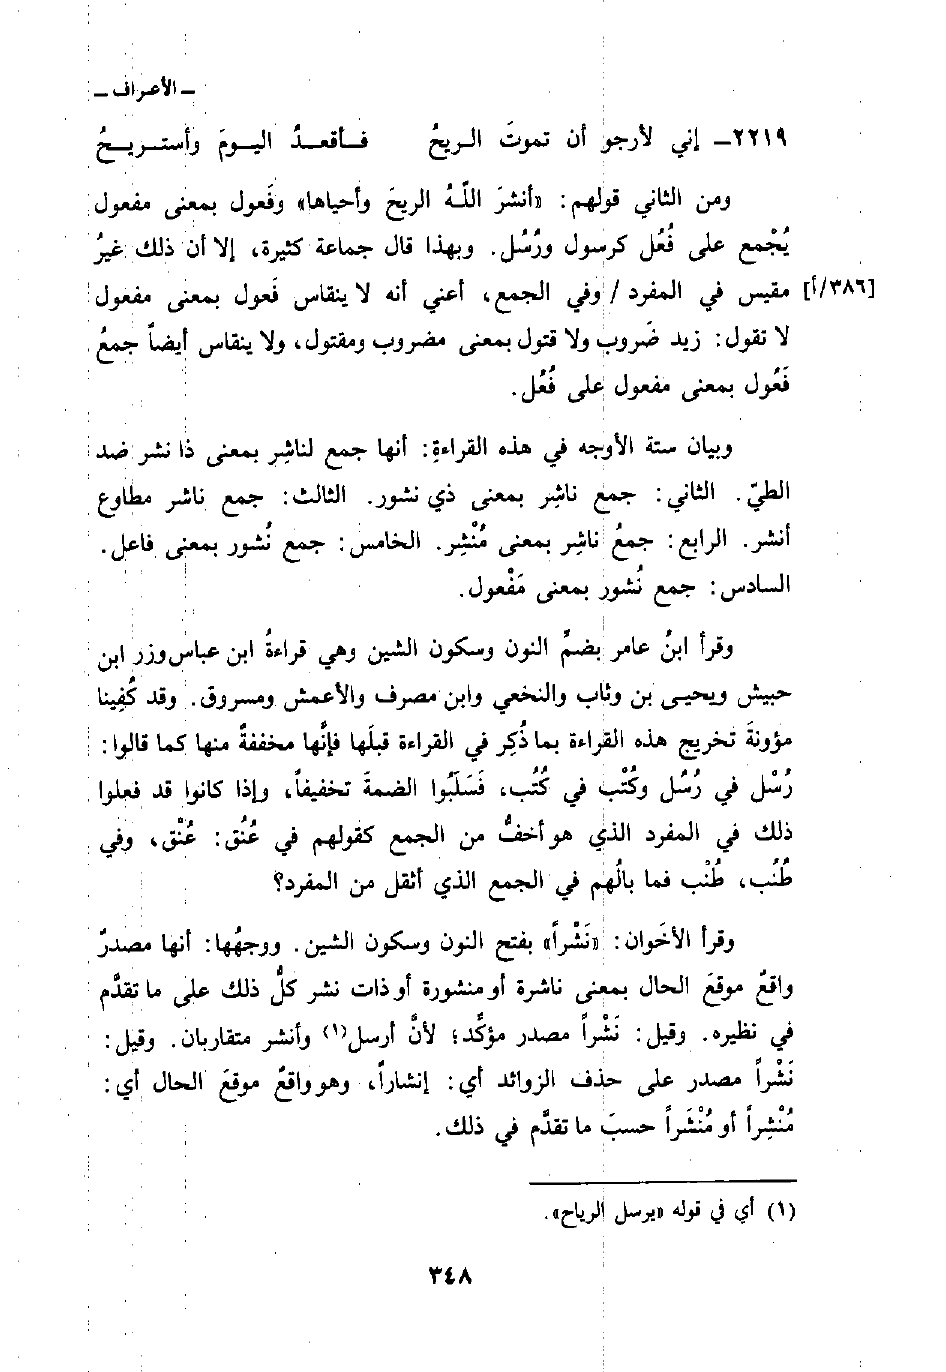 ـ الأعراف ـ
٢٢١٩ـ إني لأرجو أن تموتَ الـريحُ فـأقعـدُ اليـومَ وأستـريـحُ
ومن الثاني قولهم: «أنشرَ اللَّهُ الريحَ وأحياها» وفَعول بمعنى مفعول
يُجْمع على فُعُل كرسول ورُسُل. وبهذا قال جماعة كثيرة، إلا أن ذلك غيرُ
[٣٨٦/أ] مقيس في المفرد / وفي الجمع، أعني أنه لا ينقاس فَعول بمعنى مفعول
لا تقول: زيد ضَروب ولا قتول بمعنى مضروب ومقتول، ولا ينقاس أيضاً جمعُ
فَعُول بمعنى مفعول على فُعُل.
وبيان ستة الأوجه في هذه القراءةِ: أنها جمع لناشِر بمعنى ذا نشر ضد
الطيّ. الثاني: جمع ناشِر بمعنى ذي نشور. الثالث: جمع ناشر مطاوع
أنشر. الرابع: جمعُ ناشِر بمعنى مُنْشِر. الخامس: جمع نُشور بمعنى فاعل.
السادس: جمع نُشور بمعنى مَفْعول.
وقرأ ابنُ عامر بضمِّ النون وسكون الشين وهي قراءةُ ابن عباس وزر ابن
حبيش ويحيـى بن وثاب والنخعي وابن مصرف والأعمش ومسروق. وقد كُفِينا
مؤونةَ تخريج هذه القراءة بما ذُكِر في القراءة قبلَها فإنَّها مخففةٌ منها كما قالوا:
رُسْل في رُسُل وكُتْب في كُتُب، فَسَلَبُوا الضمةَ تخفيفاً، وإذا كانوا قد فعلوا
ذلك في المفرد الذي هو أخفُّ من الجمع كقولهم في عُنُق: عُنْق، وفي
طُنُب، طُنْب فما بالُهم في الجمع الذي أثقل من المفرد؟
وقرأ الأخَوان: «نَشْراً» بفتح النون وسكون الشين. ووجهُها: أنها مصدرٌ
واقعٌ موقعَ الحال بمعنى ناشرة أو منشورة أو ذات نشر كلُّ ذلك على ما تقدَّم
في نظيره. وقيل: نَشْراً مصدر مؤكَّد؛ لأنَّ أرسل(١) وأنشر متقاربان. وقيل:
نَشْراً مصدر على حذف الزوائد أي: إنشاراً، وهو واقعٌ موقعَ الحال أي:
مُنْشِراً أو مُنْشَراً حسبَ ما تقدَّم في ذلك.
(١) أي في قوله «يرسل الرياح».
٣٤٨